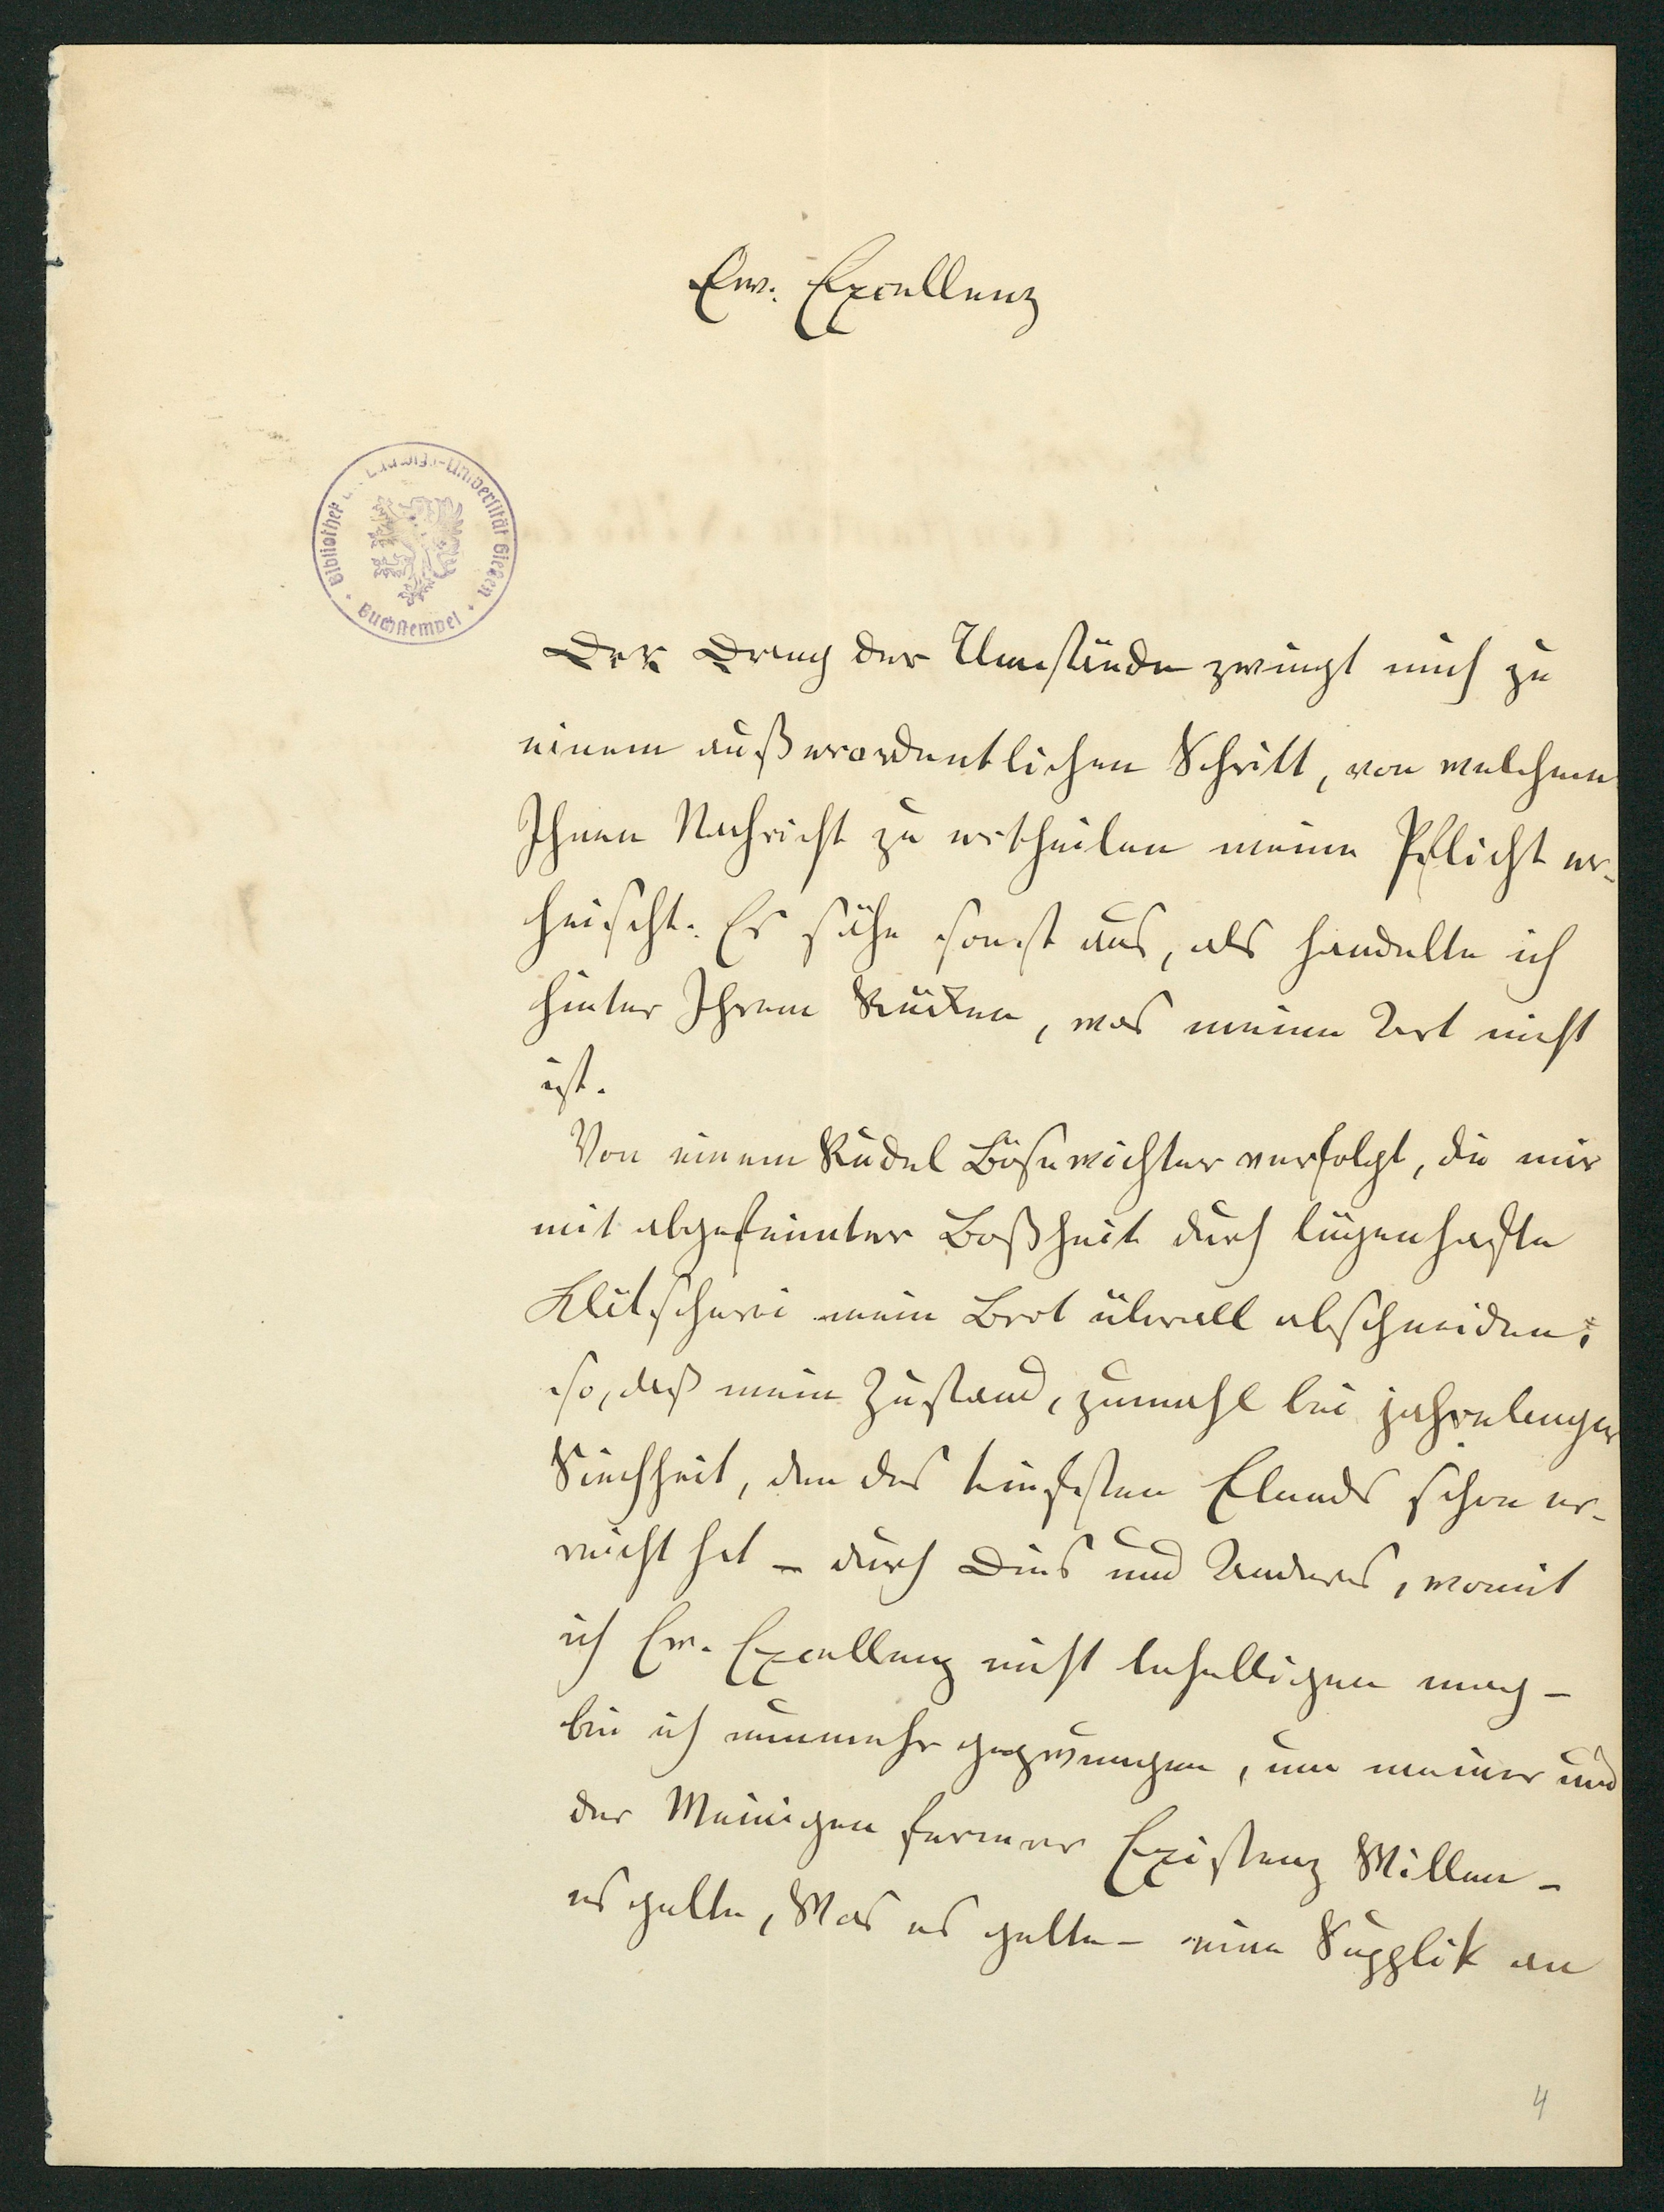 Ew. Excellenz
Bibliothek der Ludwigs-Universität Gießen
Buchstempel
Der Drang der Umstände zwingt mich zu
einem außerordentlichen Schritt, von welchem
Ihnen Nachricht zu ertheilen meine Pflicht er-
heischt. Es sähe sonst aus, als handelte ich
hinter Ihrem Rücken, was meine Art nicht
ist.
Von einem Rudel Bösewichter verfolgt, die mir
mit abgefeimter Boßheit durch lügenhafte
Klitscherei mein Brot überall abschneiden;
so, daß mein Zustand, zumahl bei jahrelanger
Siechheit, den des tiefsten Elends schon er-
reicht hat – durch Dies und Anderes, womit
ich Ew. Excellenz nicht behelligen mag –
bin ich nunmehr gezwungen, um meiner und
der Meinigen ferner Existenz Willen –
es gelte, Was es gelte – eine Supplik an
4